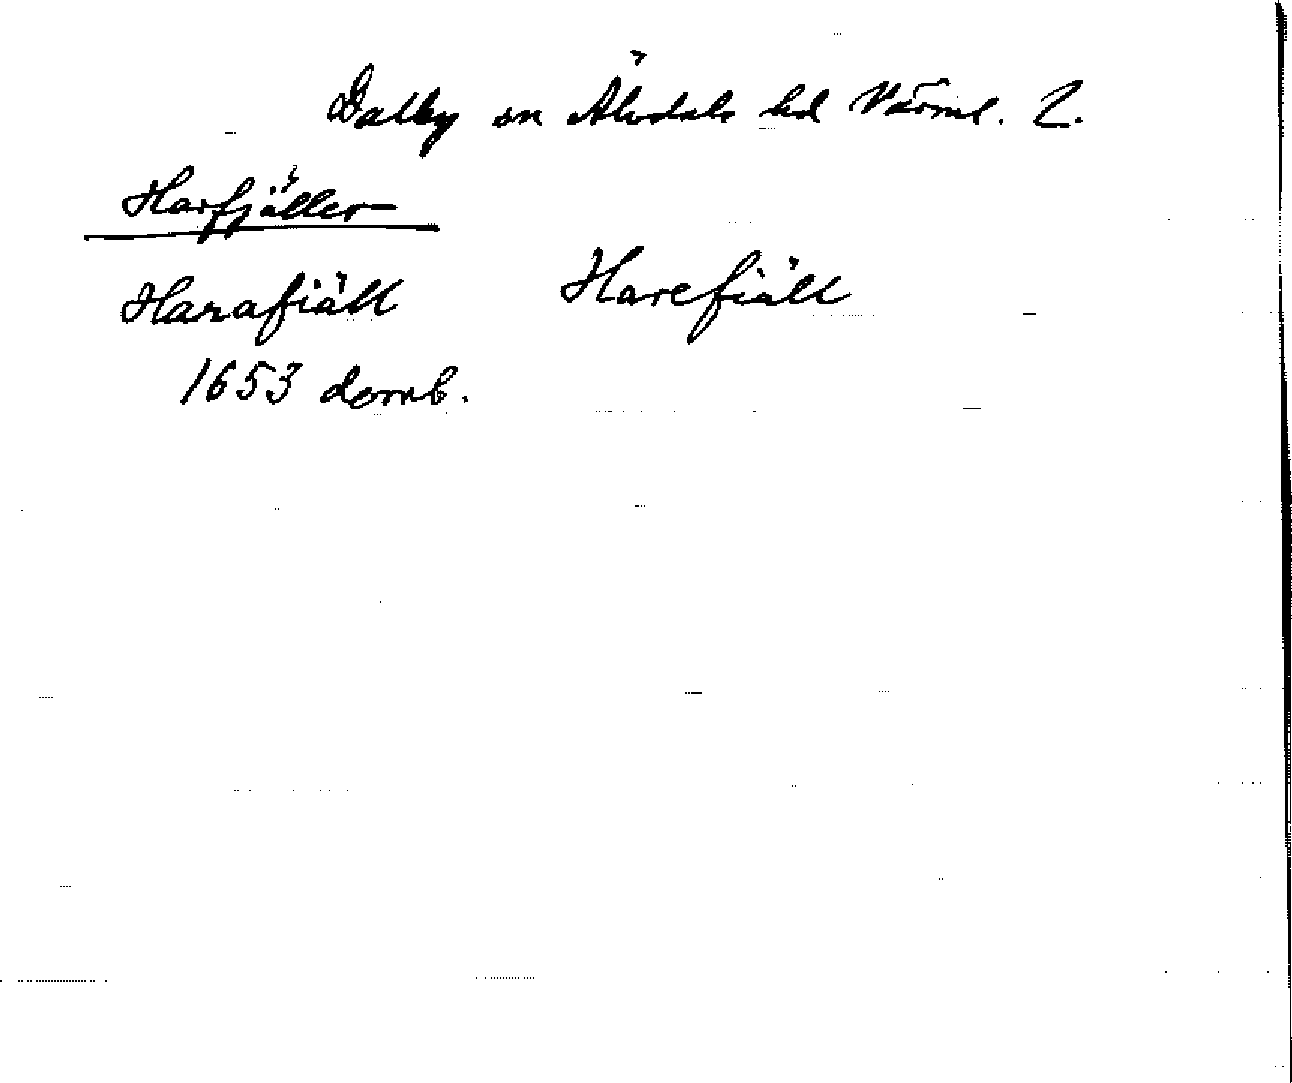 Dalby sn Älvdals hd Värml. l.
Harfjället
Harafiäll Harefiäll
1653 domb.